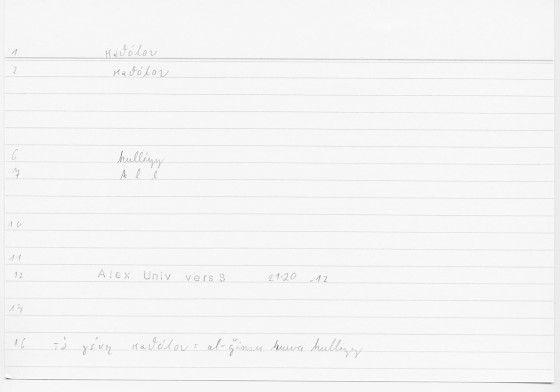 1 καθόλου
2 καθόλου
6 kullīyy
7 k l l
10
11
12 Alex Univ vers B 21.20 .12
14
16 τὰ γένη καθόλου = al-ǧins huwa kullīyy